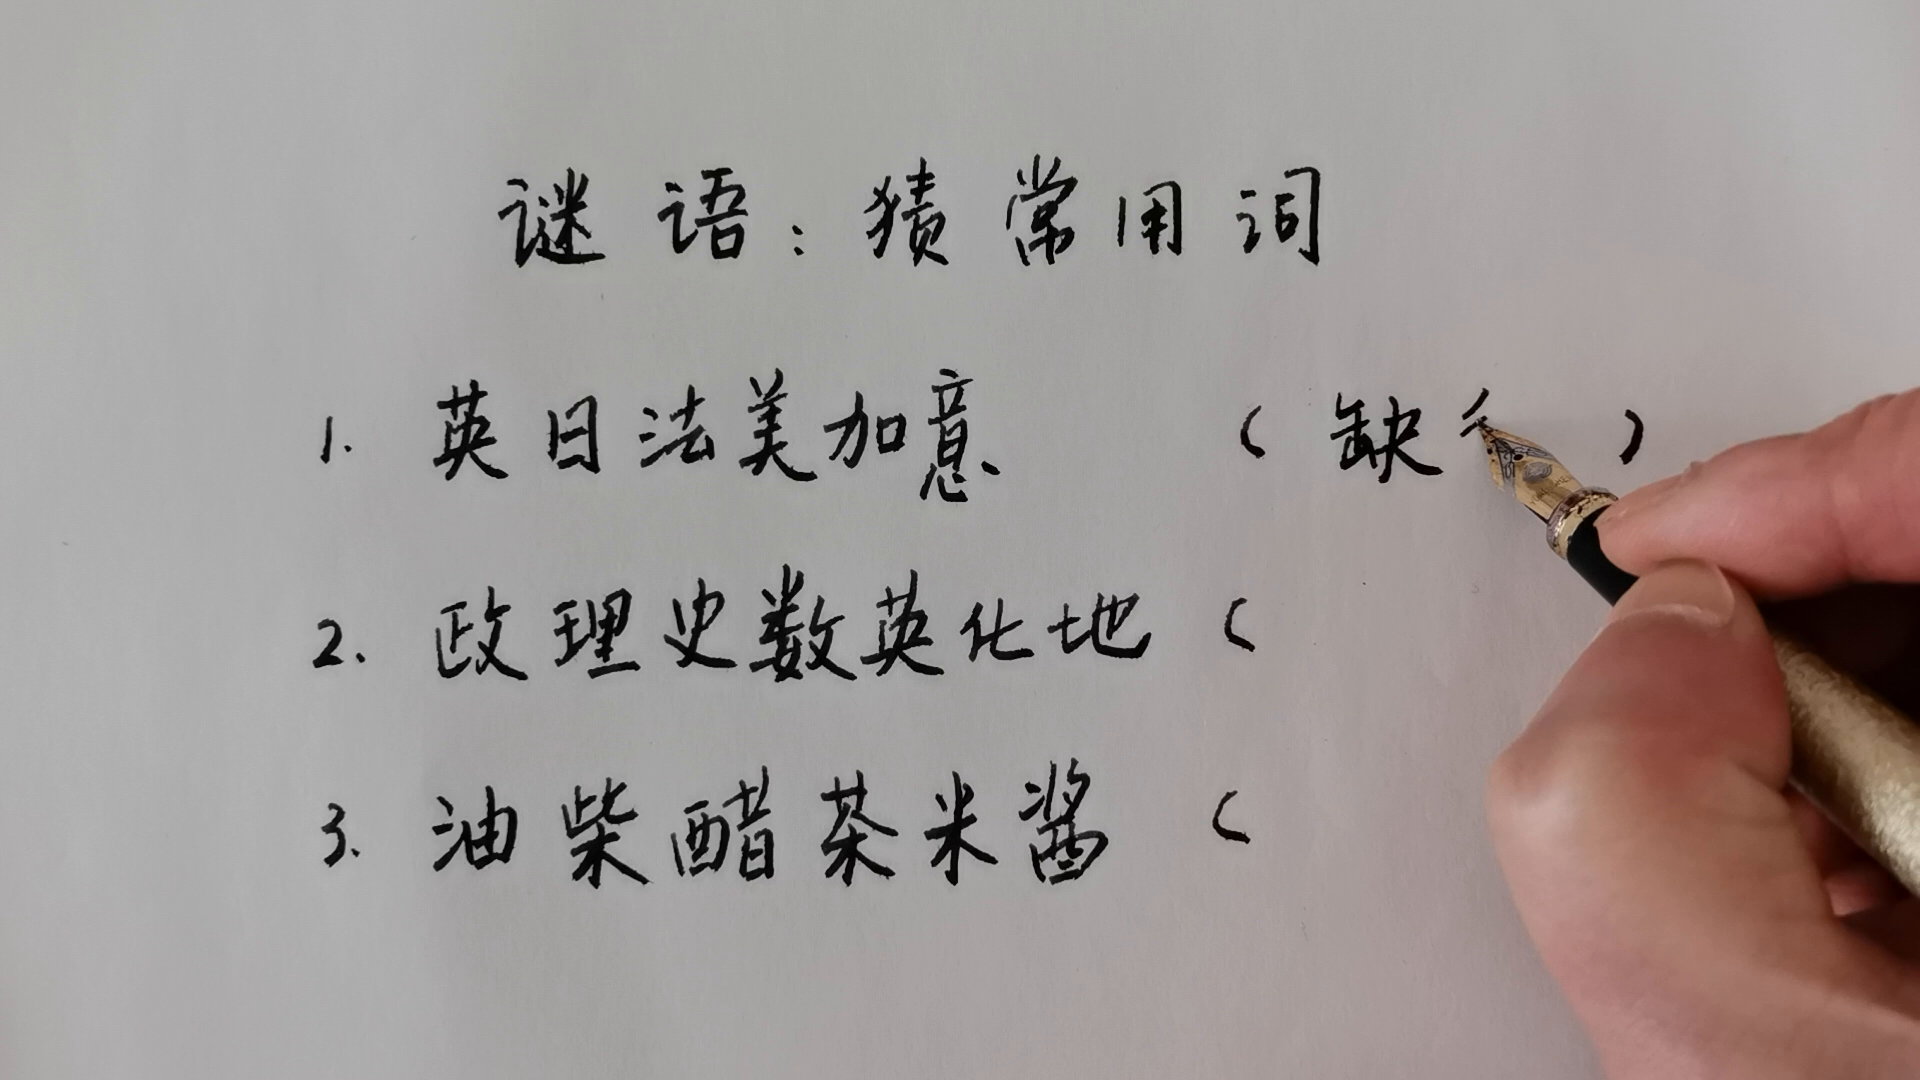 谜语：猜常用词
1. 英日法美加意 （缺 ）
2. 政理史数英化地（
3. 油柴醋茶米酱（